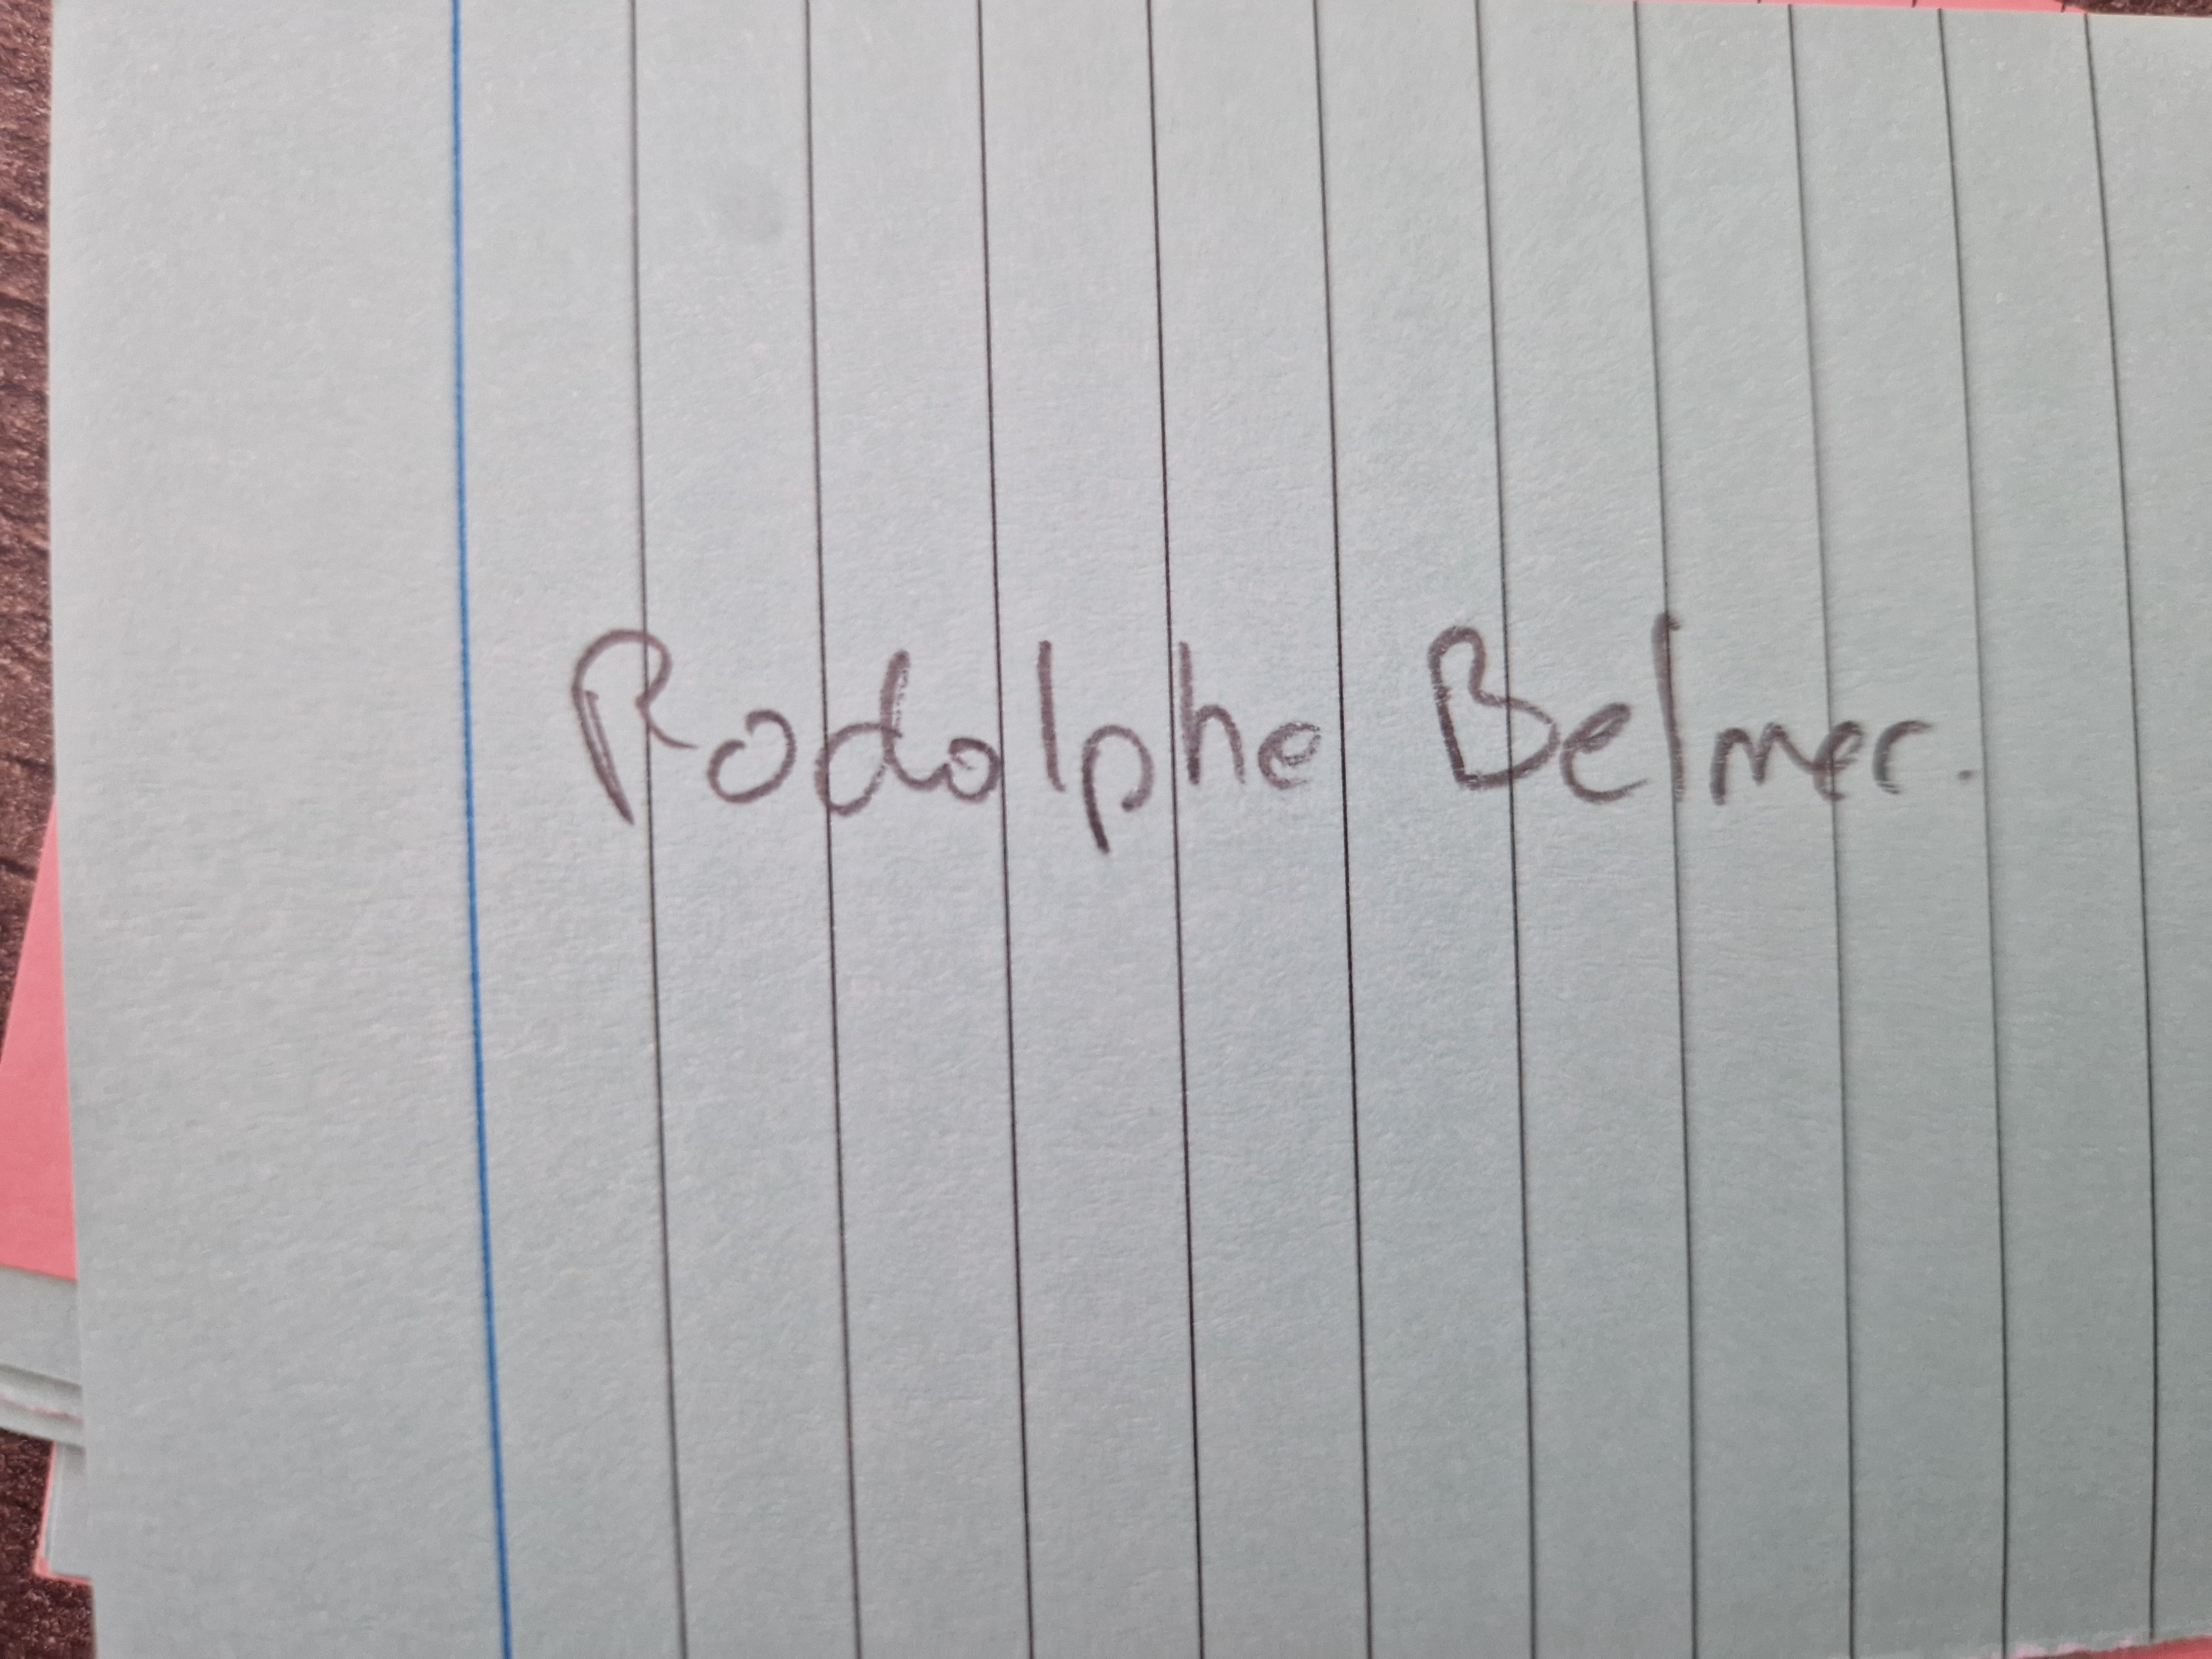 Rodolphe Belmer.